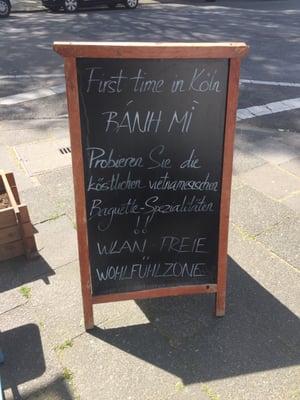 First time in Köln
BÁNH MÌ
Probieren Sie die
köstlichen vietnamesischen
Baguette-Spezialitäten
!!
WLAN-FREIE
WOHLFÜHLZONE